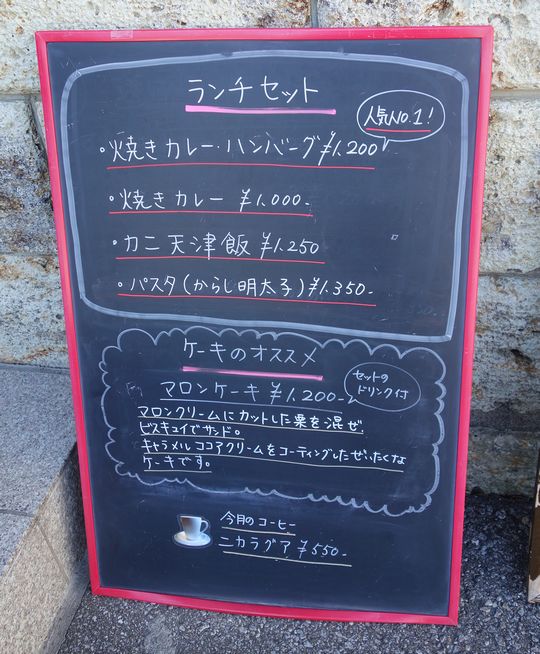 ランチセット
人気No.1!
・焼きカレー・ハンバーグ ¥1.200
・焼きカレー ¥1.000-
・カニ天津飯 ¥1.250
・パスタ(からし明太子) ¥1.350-
ケーキのオススメ
マロンケーキ ¥1.200-
セットの
ドリンク付
マロンクリームにカットした栗を混ぜ、
ビスキュイでサンド。
キャラメルココアクリームをコーティングしたぜいたくな
ケーキです。
今月のコーヒー
ニカラグア ¥550-